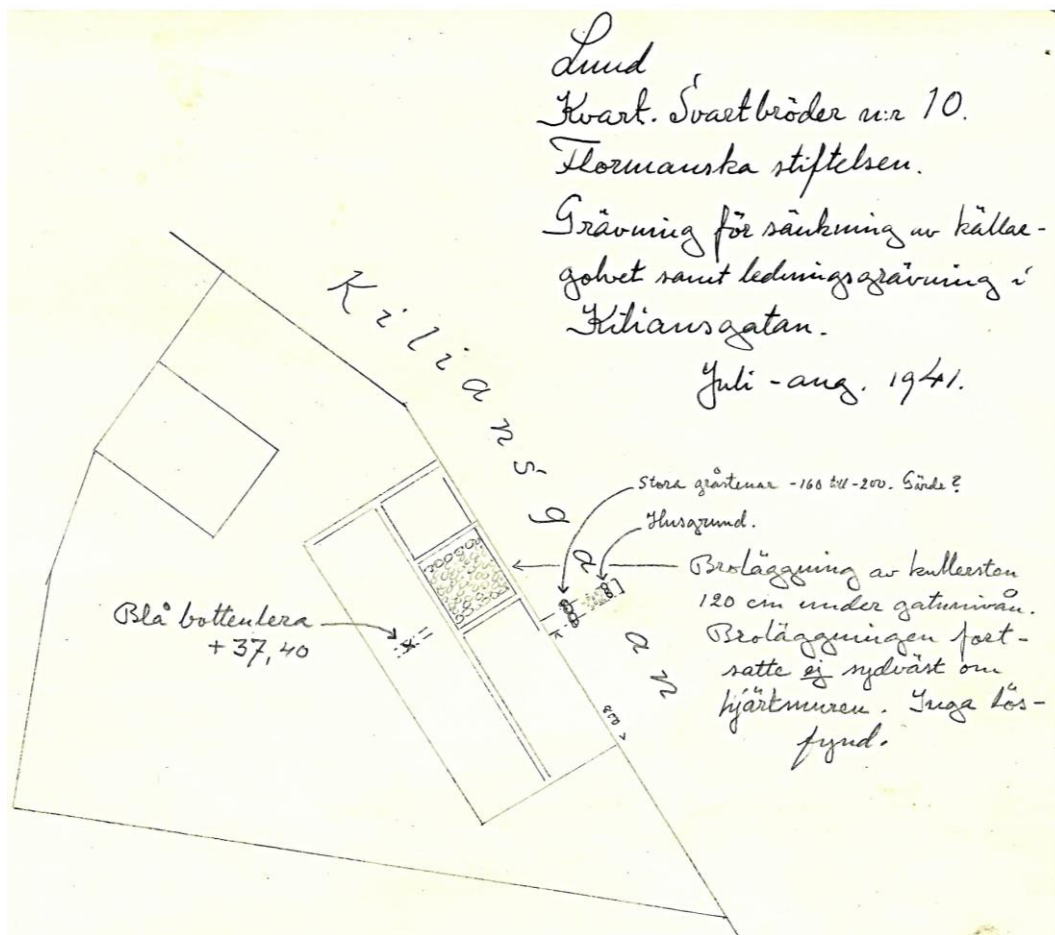 Lund
Kvart. Svartbröder n:r 10.
Flormanska stiftelsen.
Grävning för sänkning av källar-
golvet samt ledningsgrävning i
Kiliansgatan.
Juli - aug. 1941.
Kiliansgatan
Stora gråstenar -160 till -200. Gärde?
Husgrund.
Broläggning av kullersten
120 cm under gatunivån.
Broläggningen fort-
satte ej sydväst om
hjärtmuren. Inga lös-
fynd.
Blå bottenlera
+37,40